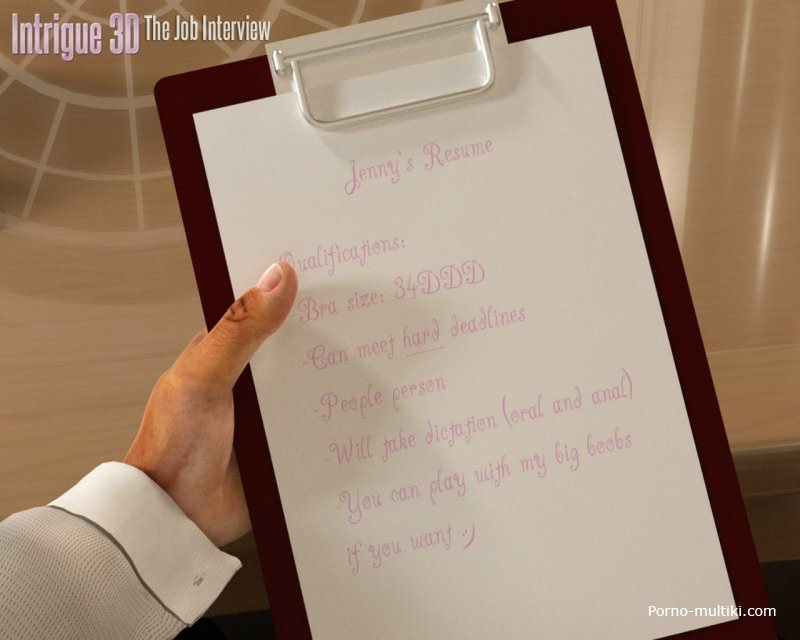 Intrigue 3D The Job Interview
Jenny's Resume
Qualifications:
-Bra size: 34DDD
-Can meet hard deadlines
-People person
-Will take dictation (oral and anal)
-You can play with my big boobs
if you want ;)
Porno-multiki.com